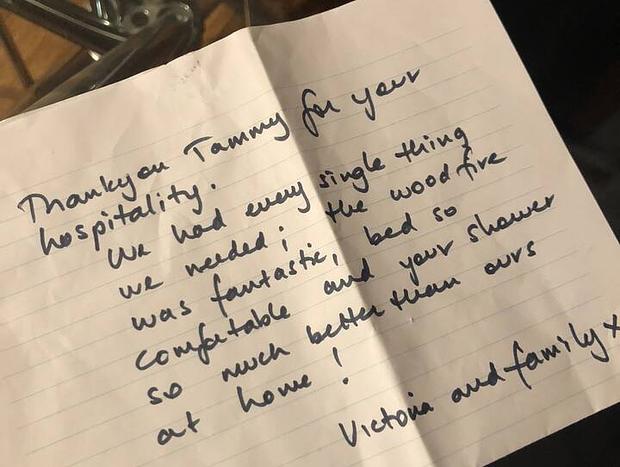 Thankyou Tammy for your
hospitality.
We had every single thing
we needed; the wood fire
was fantastic, bed so
comfortable and your shower
so much better than ours
at home!
Victoria and family x